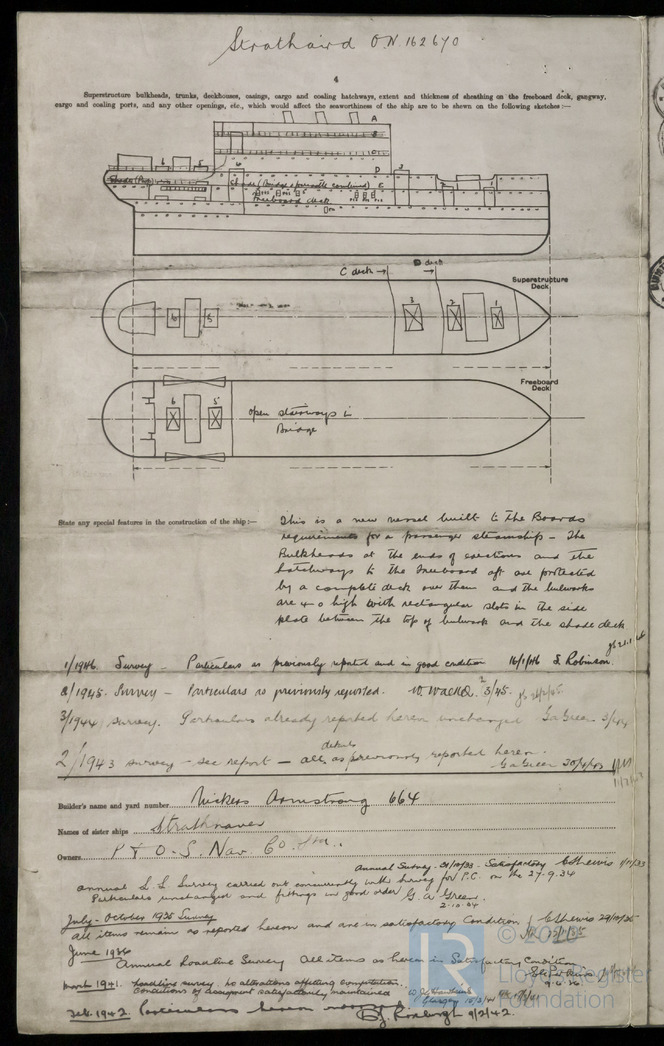 Strathaird O.N. 162670
4
Superstructure bulkheads, trunks, deckhouses, casings, cargo and coaling hatchways, extent and thickness of sheathing on the freeboard deck, gangway,
cargo and coaling ports, and any other openings, etc., which would affect the seaworthiness of the ship are to be shewn on the following sketches :—
A
B
C
D
E
6
5
6
3
2
1
Shade (Bridge & forecastle combined)
Freeboard deck
C deck →
D deck →
Superstructure
Deck
6
5
3
2
1
Freeboard
Deck
6
5
open stairways in
Bridge
State any special features in the construction of the ship :—
This is a new vessel built to the Boards
requirements for a passenger steamship - The
Bulkheads at the ends of erections and the
hatchways to the freeboard aft are protected
by a complete deck over them and the bulwarks
are 4-0 high with rectangular slots in the side
plate between the top of bulwark and the shade deck
1/1946 Survey - Particulars as previously reported and in good condition 16/1/46 S. Robinson.
2/1945. Survey - Particulars as previously reported. 2/3/45.
3/1944 survey. Particulars already reported herein unchanged Ga Green
2/1943 survey - see report - all details as previously reported herein.
Ga Green
Builder's name and yard number Vickers Armstrong 664
Names of sister ships Strathnaver
Owners P & O. S. Nav. Co.
Annual Survey - Satisfactory
Annual L.L. Survey carried out concurrently with survey for P.C. on the 27.9.34
Particulars unchanged and fittings in good order G. A. Green.
2-10-34
July - October 1935 Survey
All items remain as reported hereon and are in satisfactory Condition
June 1936
Annual Loadline Survey All items as herein in Satisfactory Condition
9.6.36.
March 1941. Loadline survey. No alterations affecting computation.
Conditions of assignment satisfactorily maintained
Glasgow
Feb. 1942. Particulars hereon
9/2/42.
LR
© 2020
Lloyd's Register
Foundation